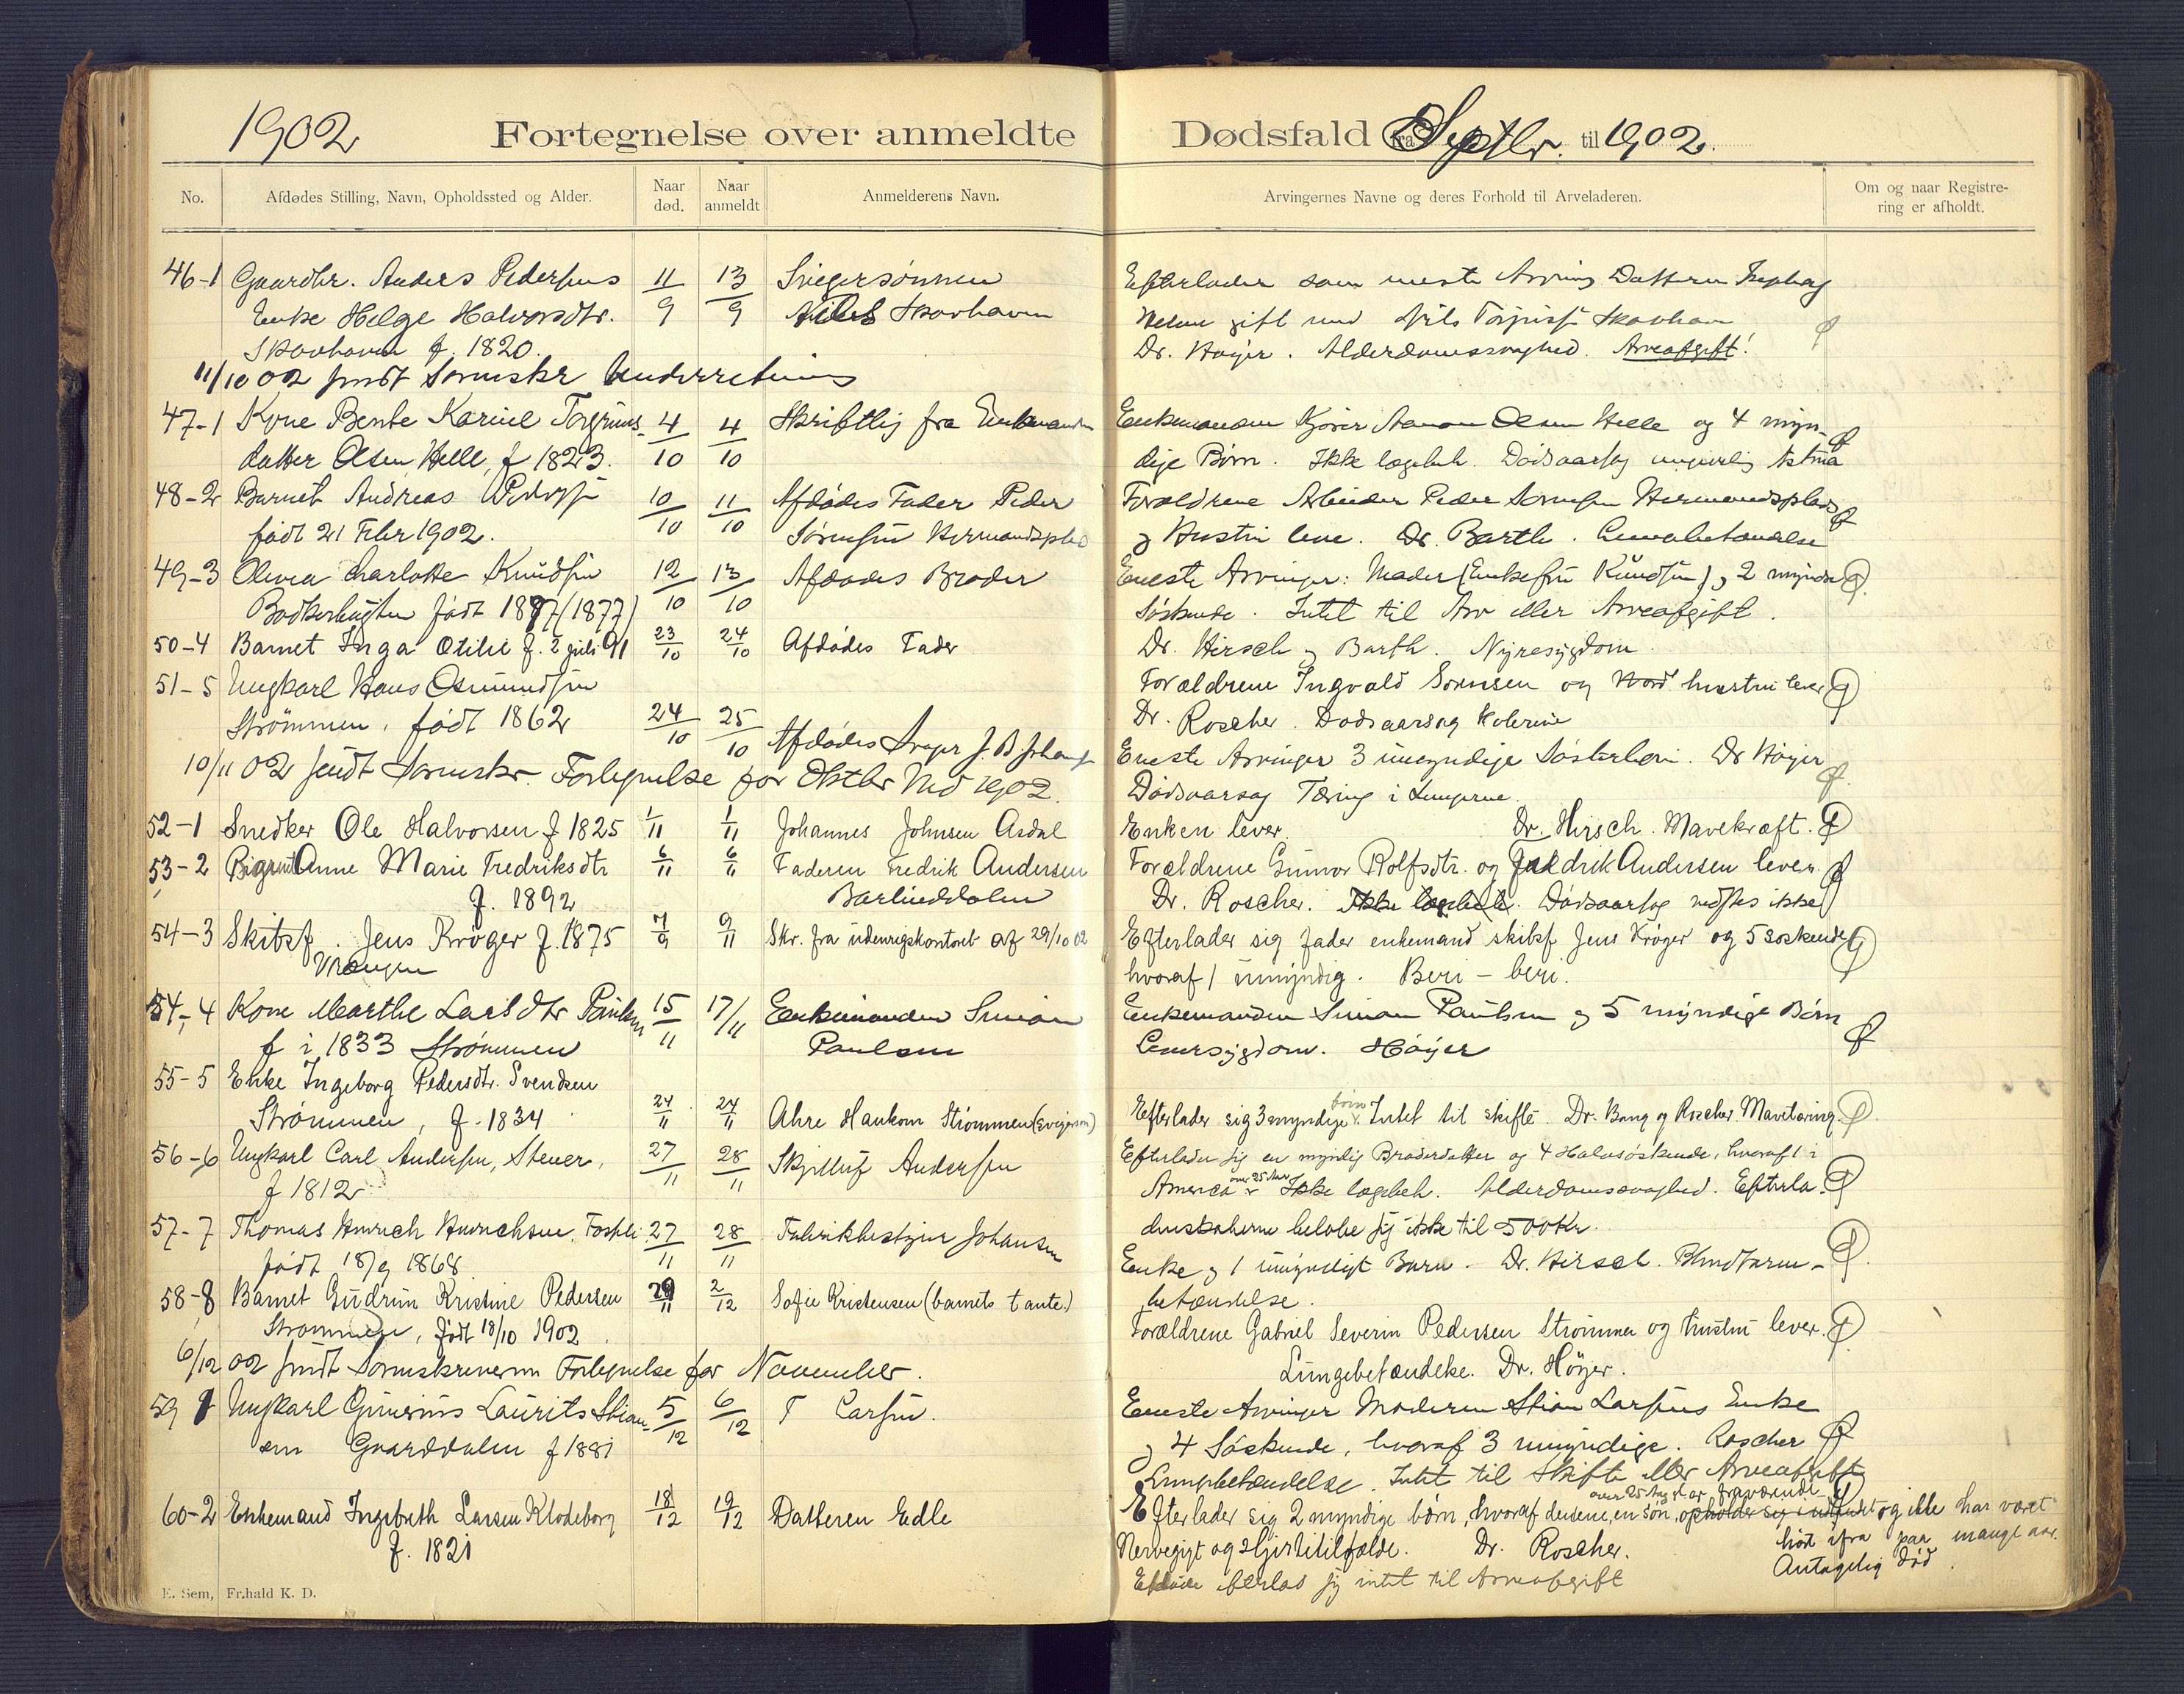 1902
Fortegnelse over anmeldte
No.
Afdødes Stilling, Navn, Opholdssted og Alder.
Naar død.
Naar anmeldt
Anmelderens Navn.
46-1 Gaardbr. Anders Pedersens 11/9 13/9 Sviegersønnen
Enke Helge Halvorsdtr. Niels Skovhaven
Skovhaven f. 1820.
11/10 02 sendt Sorenskr Underretning
47-1 Kone Bente Karine Torgrims- 4/10 4/10 Skriftlig fra Enkemanden
datter Olsen Helle, f 1823.
48-2 Barnet Andreas Peders 10/10 11/10 Afdødes Fader Peder
født 21 Febr 1902. Sørensen Hermandsplad
49-3 Olivia Charlotte Knudsen 12/10 13/10 Afdødes Broder
født 1877 (1877)
50-4 Barnet Inga Otilie f. 2 juli 91 23/10 24/10 Afdødes Fader
51-5 Ungkarl Hans Osmundsen
Strømmen, født 1862 24/10 25/10 Afdødes Svoger J. B Johans
10/11 02 sendt Sorenskr. Fortegnelse for Oktbr Md 1902.
52-1 Snedker Ole Halvorsen f 1825 1/11 1/11 Johannes Johnsen Asdal
53-2 Anne Marie Fredriksdtr 6/11 6/11 Faderen Fredrik Andersen
f. 1892 Barlinddalen
54-3 Skibsf. Jens Krøger f. 1875 7/9 9/11 Skr. fra udenrigskontoret af 29/10 02
Vrængen
54-4 Kone Marthe Larsdtr Paulsen 15/11 17/11 Enkemanden Simon
f i 1833 Strømmen Paulsen
55-5 Enke Ingeborg Pedersdtr. Svendsen
Strømmen, f. 1834 24/11 24/11 Ahre Haukom Strømmen (svigersøn)
56-6 Ungkarl Carl Andersen, Stener, 27/11 28/11 Skjellulf Andersen
f 1812
57-7 Thomas Hinrich Hinrichsen, 27/11 28/11 Fabrikbestyrer Johansen
født 18/9 1868
58-8 Barnet Gudrun Kristine Pedersen 29/11 2/12 Sofie Kristensen (barnets tante.)
Strømmen, født 18/10 1902
6/12 02 sendt Sorenskriveren Fortegnelse for November.
59 1 Ungkarl Laurits Stian- 5/12 6/12 T Larsen.
sen Gaarddalen f 1881
60-2 Enkemand Ingebreth Larsen Klodeborg 18/12 19/12 Datteren Edle
f. 1821
E. Sem, Fr.hald K. D.
Dødsfald fra Septbr. til 1902.
Arvingernes Navne og deres Forhold til Arveladeren.
Om og naar Registrering er afholdt.
Efterlader som neste Arving Datteren Ingeborg
gift med Nils Skovhaven
Dr. Høyer. Alderdomssvaghed. Arveafgift!
Enkemanden Kjører Aanon Olsen Helle og 4 myn-
dige Børn. Ikke lægebeh. Dødsaarsag Astma
Forældrene Arbeider Peder Sørensen Hermandsplads
og Hustru leve. Dr. Barth.
Eneste Arvinger: Moder (Enkefru Knudsen) og 2 myndige
Søskende. Intet til Arv eller Arveafgift.
Dr. Hirsch og Barth. Nyresygdom.
Forældrene Ingvald Sørensen og hustru lever
Dr. Roscher. Dødsaarsag Kolerine
Eneste Arvinger 3 umyndige Søsterbørn. Dr Høyer
Dødsaarsag Tæring i Lungerne.
Enken lever. Dr. Hirsch. Mavekræft.
Forældrene Gunvor Rolfsdtr. og Fredrik Andersen lever.
Dr. Roscher. Ikke lægebeh. Dødsaarsag vidstes ikke
Efterlader sig fader enkemand skibsf Jens Krøger og 5 søskende
hvoraf 1 umyndig. Beri-beri.
Enkemanden Simon Paulsen og 5 myndige Børn
Leversygdom. Høyer
Efterlader sig 3 myndige børn. Intet til skifte. Dr. Bang og Roscher. Mavetæring.
Efterlader sig en myndig Broderdatter og 4 Halvsøskende, hvoraf 1 i
America over 25 Aar. Ikke lægebeh. Alderdomssvaghed. Efterla-
denskaberne beløbe sig ikke til 500 Kr.
Enke og 1 umyndigt Barn. Dr. Hirsch. Blindtarm-
betændelse.
Forældrene Gabriel Severin Pedersen Strømmen og hustru lever.
Lungebetændelse. Dr. Høyer.
Eneste Arvinger Moderen Stian Larsens Enke
og 4 Søskende, hvoraf 3 umyndige. Roscher
Lungebetændelse. Intet til Skifte eller Arveafgift
Efterlader sig 2 myndige børn, hvoraf den ene, en søn, opholder sig i udlandet og ikke har været
over 25 Aar er fraværende
hørt ifra paa mange aar.
Nervegigt og Hjertetilfælde. Dr. Roscher. Antagelig død.
efterlod sig intet til Arveafgift